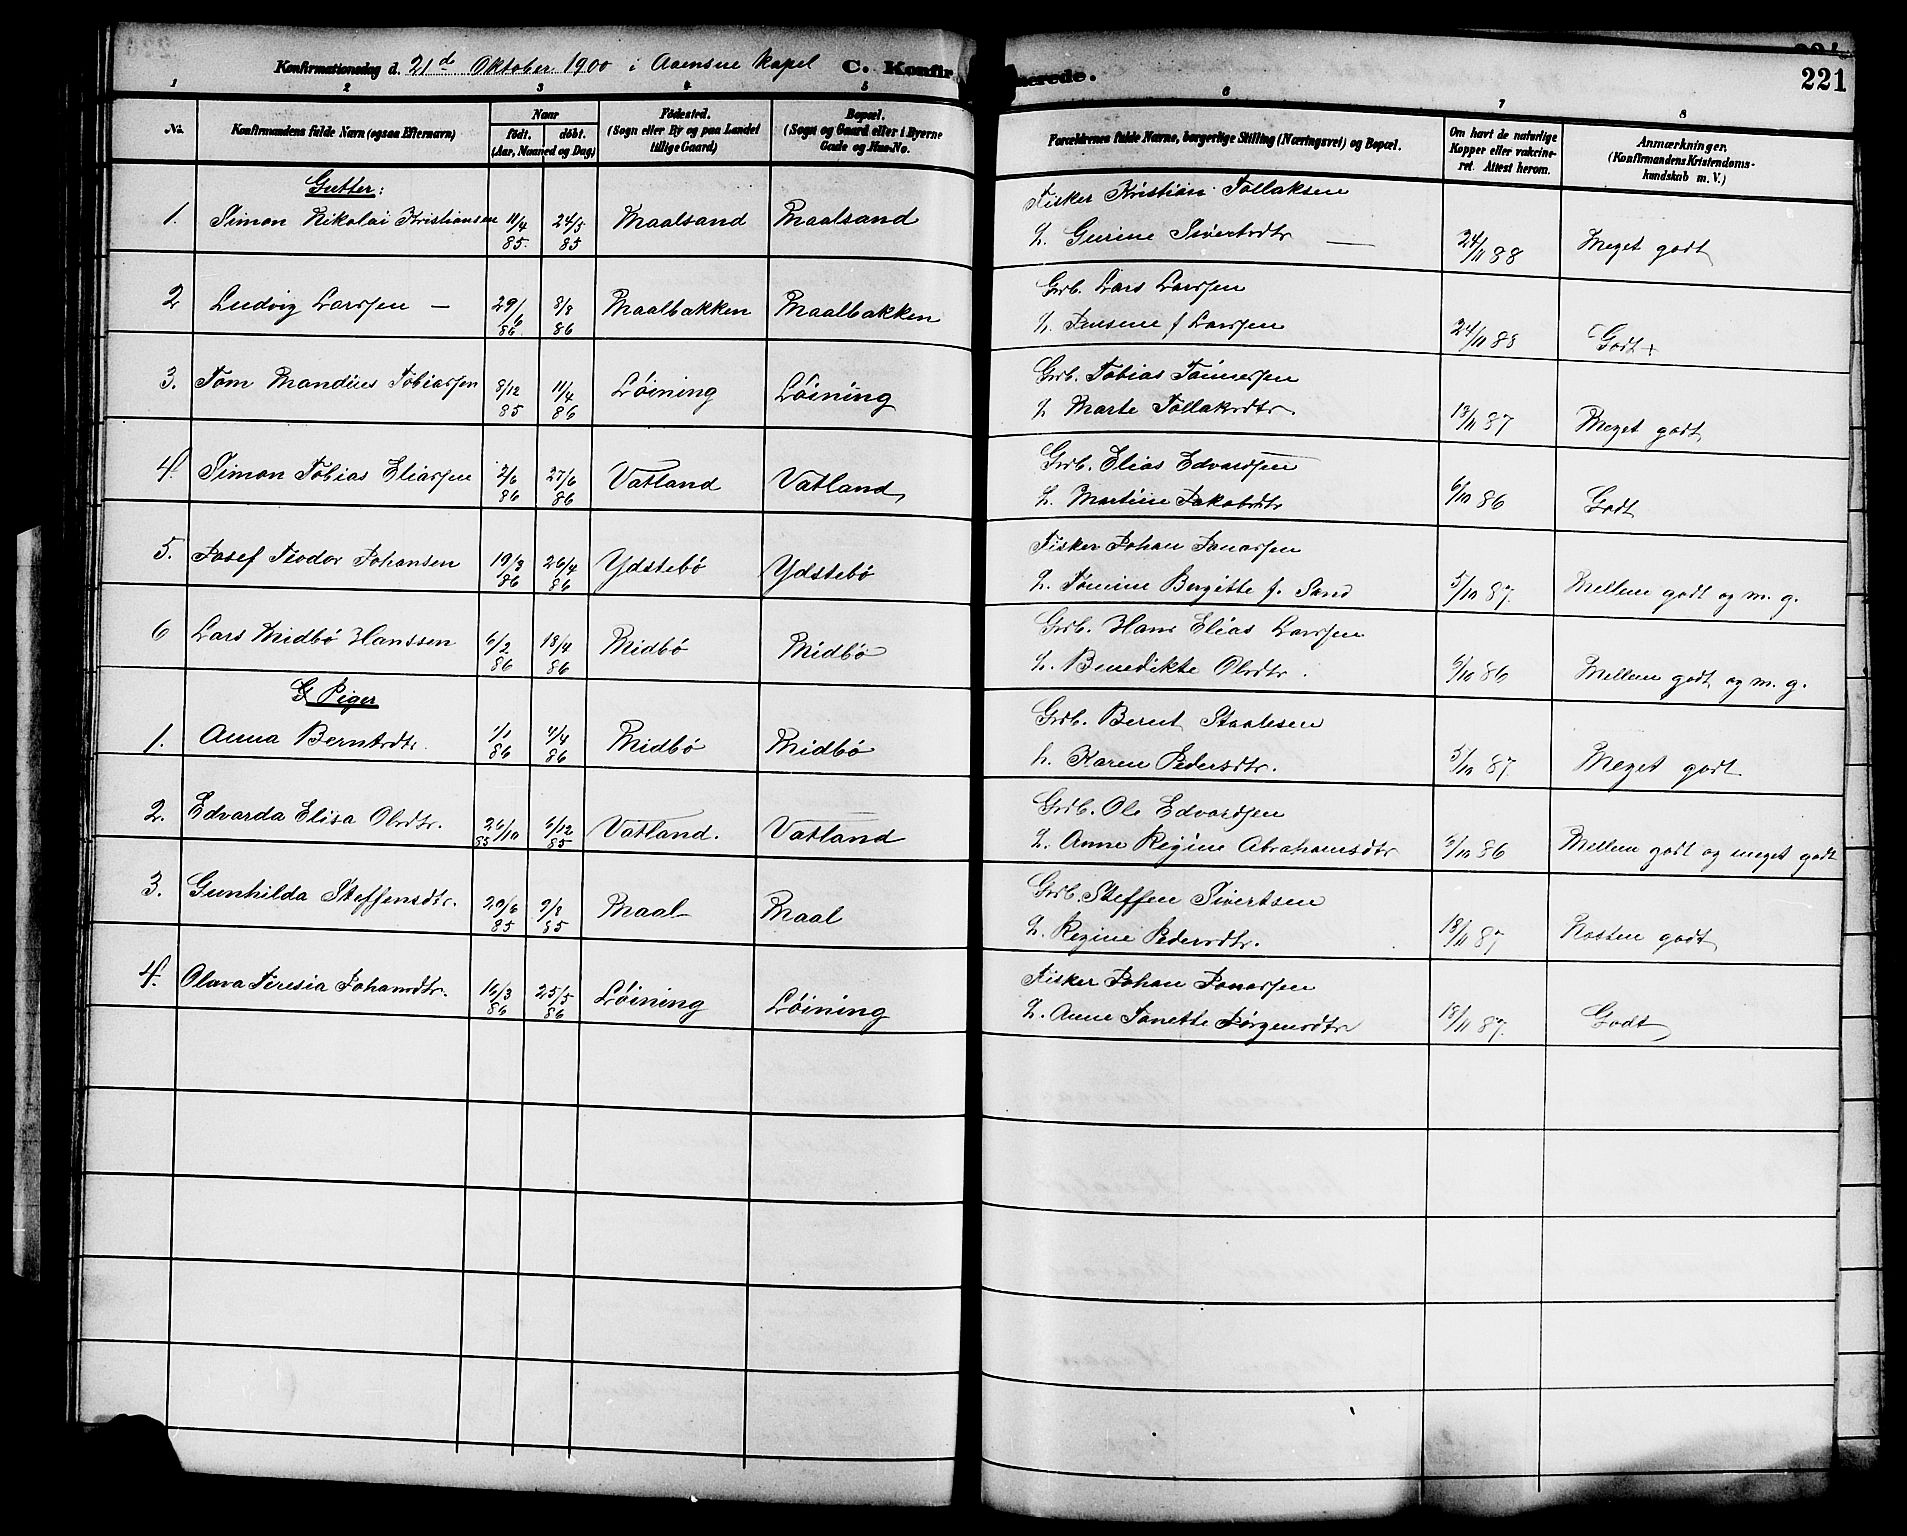 Konfirmationsdag d. 21de Oktober 1900 i kapel C. Konfirmerede. 221
1 2 3 4 5 6 7 8
No. Konfirmandens fulde Navn (ogsaa Efternavn) Naar født. døbt. (Aar, Maaned og Dag) Fødested. (Sogn eller By og paa Landet tillige Gaard) Bopæl. (Sogn og Gaard eller i Byerne Gade og Hus-No. Forældrenes fulde Navne, borgerlige Stilling (Næringsvei) og Bopæl. Om havt de naturlige Kopper eller vakcineret. Attest herom. Anmærkninger. (Konfirmandens Kristendomskundskab m. V.)
Gutter:
1. Simon Nikolai Kristiansen 11/4 85. 24/5 85 Maalsand Maalsand Fisker Kristian Tollaksen
L. Gurine Sivertsdtr — 24/11 88 Meget godt
2 Ludvig Larssen — 29/6 86. 8/8 86 Maalbakken Maalbakken Grb. Lars Larssen
L. f Larssen 24/11 88 Godt+
3. Tom Mandius Tobiassen 8/12 85 11/4 86 Løining Løining Grb. Tobias Tønnessen
L Marte Tollaksdtr. 18/11 87 Meget godt
4. Simon Tobias Eliassen 2/6 86 27/6 86 Vatland Vatland Grb. Elias Edvardsen
L. Martine Jakobsdtr 6/10 86 Godt
5. Josef Teodor Johansen 19/3 86 26/4 86 Ydstebø Ydstebø Fisker Johan Jonassen
L. Tomine Bergitte f. Sand 5/10 87. Mellem godt og m. g.
6 Lars Midbø Hanssen 6/2 86 18/4 86 Midbø Midbø Grb. Hans Elias Larssen
L. Benedikte Olsdtr. 6/10 86 Mellem godt og m. g.
Piger
1. Anna Berntsdtr. 1/1 86 4/4 86 Midbø Midbø Grb. Bernt Staalesen
h. Karen Pedersdtr. 5/10 87 Meget godt
2. Edvarda Elisa Olsdtr. 26/10 85 6/12 85 Vatland. Vatland Grb. Ole Edvardsen
L. Anne Regine Abrahamsdtr 6/10 86 Mellem godt og meget godt
3. Gunhilda Steffensdtr. 29/6 85 2/8 85 Maal Maal Grb. Steffen Sivertsen
L. Regine Pedersdtr. 18/11 87 Næsten godt
4. Olava Teresia Johansdtr. 16/3 86 25/5 86 Løining Løining Fisker Johan Jonassen
L. Anne Janette Jørgensdtr 18/11 87. Godt